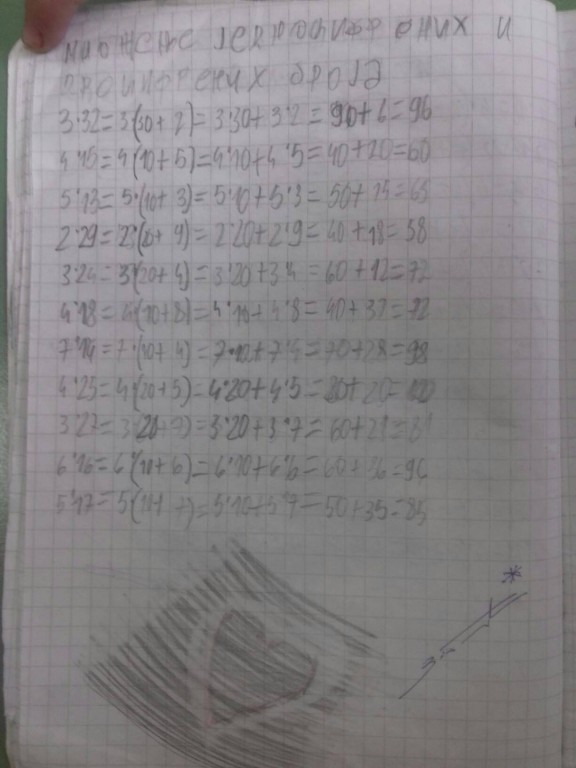 МНОЖЕЊЕ ЈЕДНОЦИФРЕНИХ И
ДВОЦИФРЕНИХ БРОЈА
3·32=3(30+2)=3·30+3·2=90+6=96
4·15=4(10+5)=4·10+4·5=40+20=60
5·13=5·(10+3)=5·10+5·3=50+15=65
2·29=2·(20+9)=2·20+2·9=40+18=58
3·24=3(20+4)=3·20+3·4=60+12=72
4·18=4(10+8)=4·10+4·8=40+32=72
7·14=7·(10+4)=7·10+7·4=70+28=98
4·25=4(20+5)=4·20+4·5=80+20=100
3·27=3(20+7)=3·20+3·7=60+21=81
6·16=6(10+6)=6·10+6·6=60+36=96
5·17=5(10+7)=5·10+5·7=50+35=85